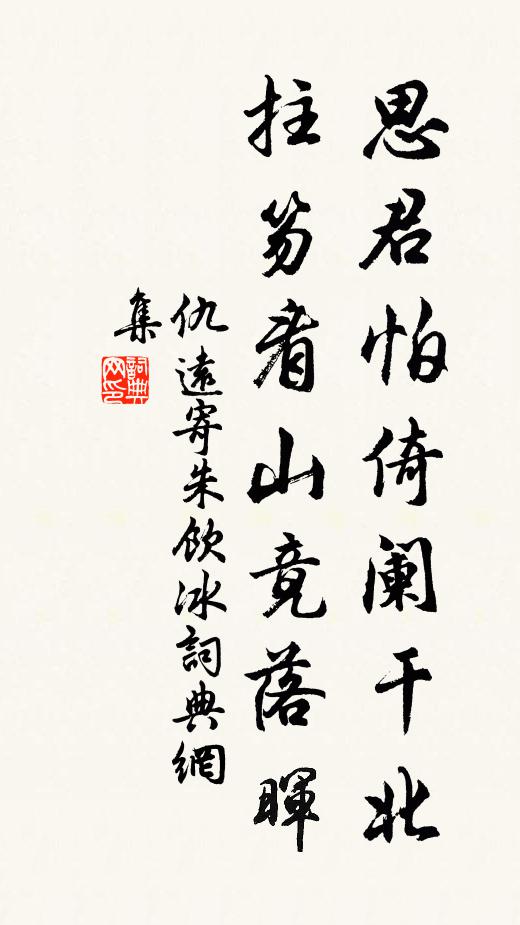 思君怕倚阑干北
拄笏看山竟落暉
仇遠寄朱飲冰詞典網
集
詞典网印